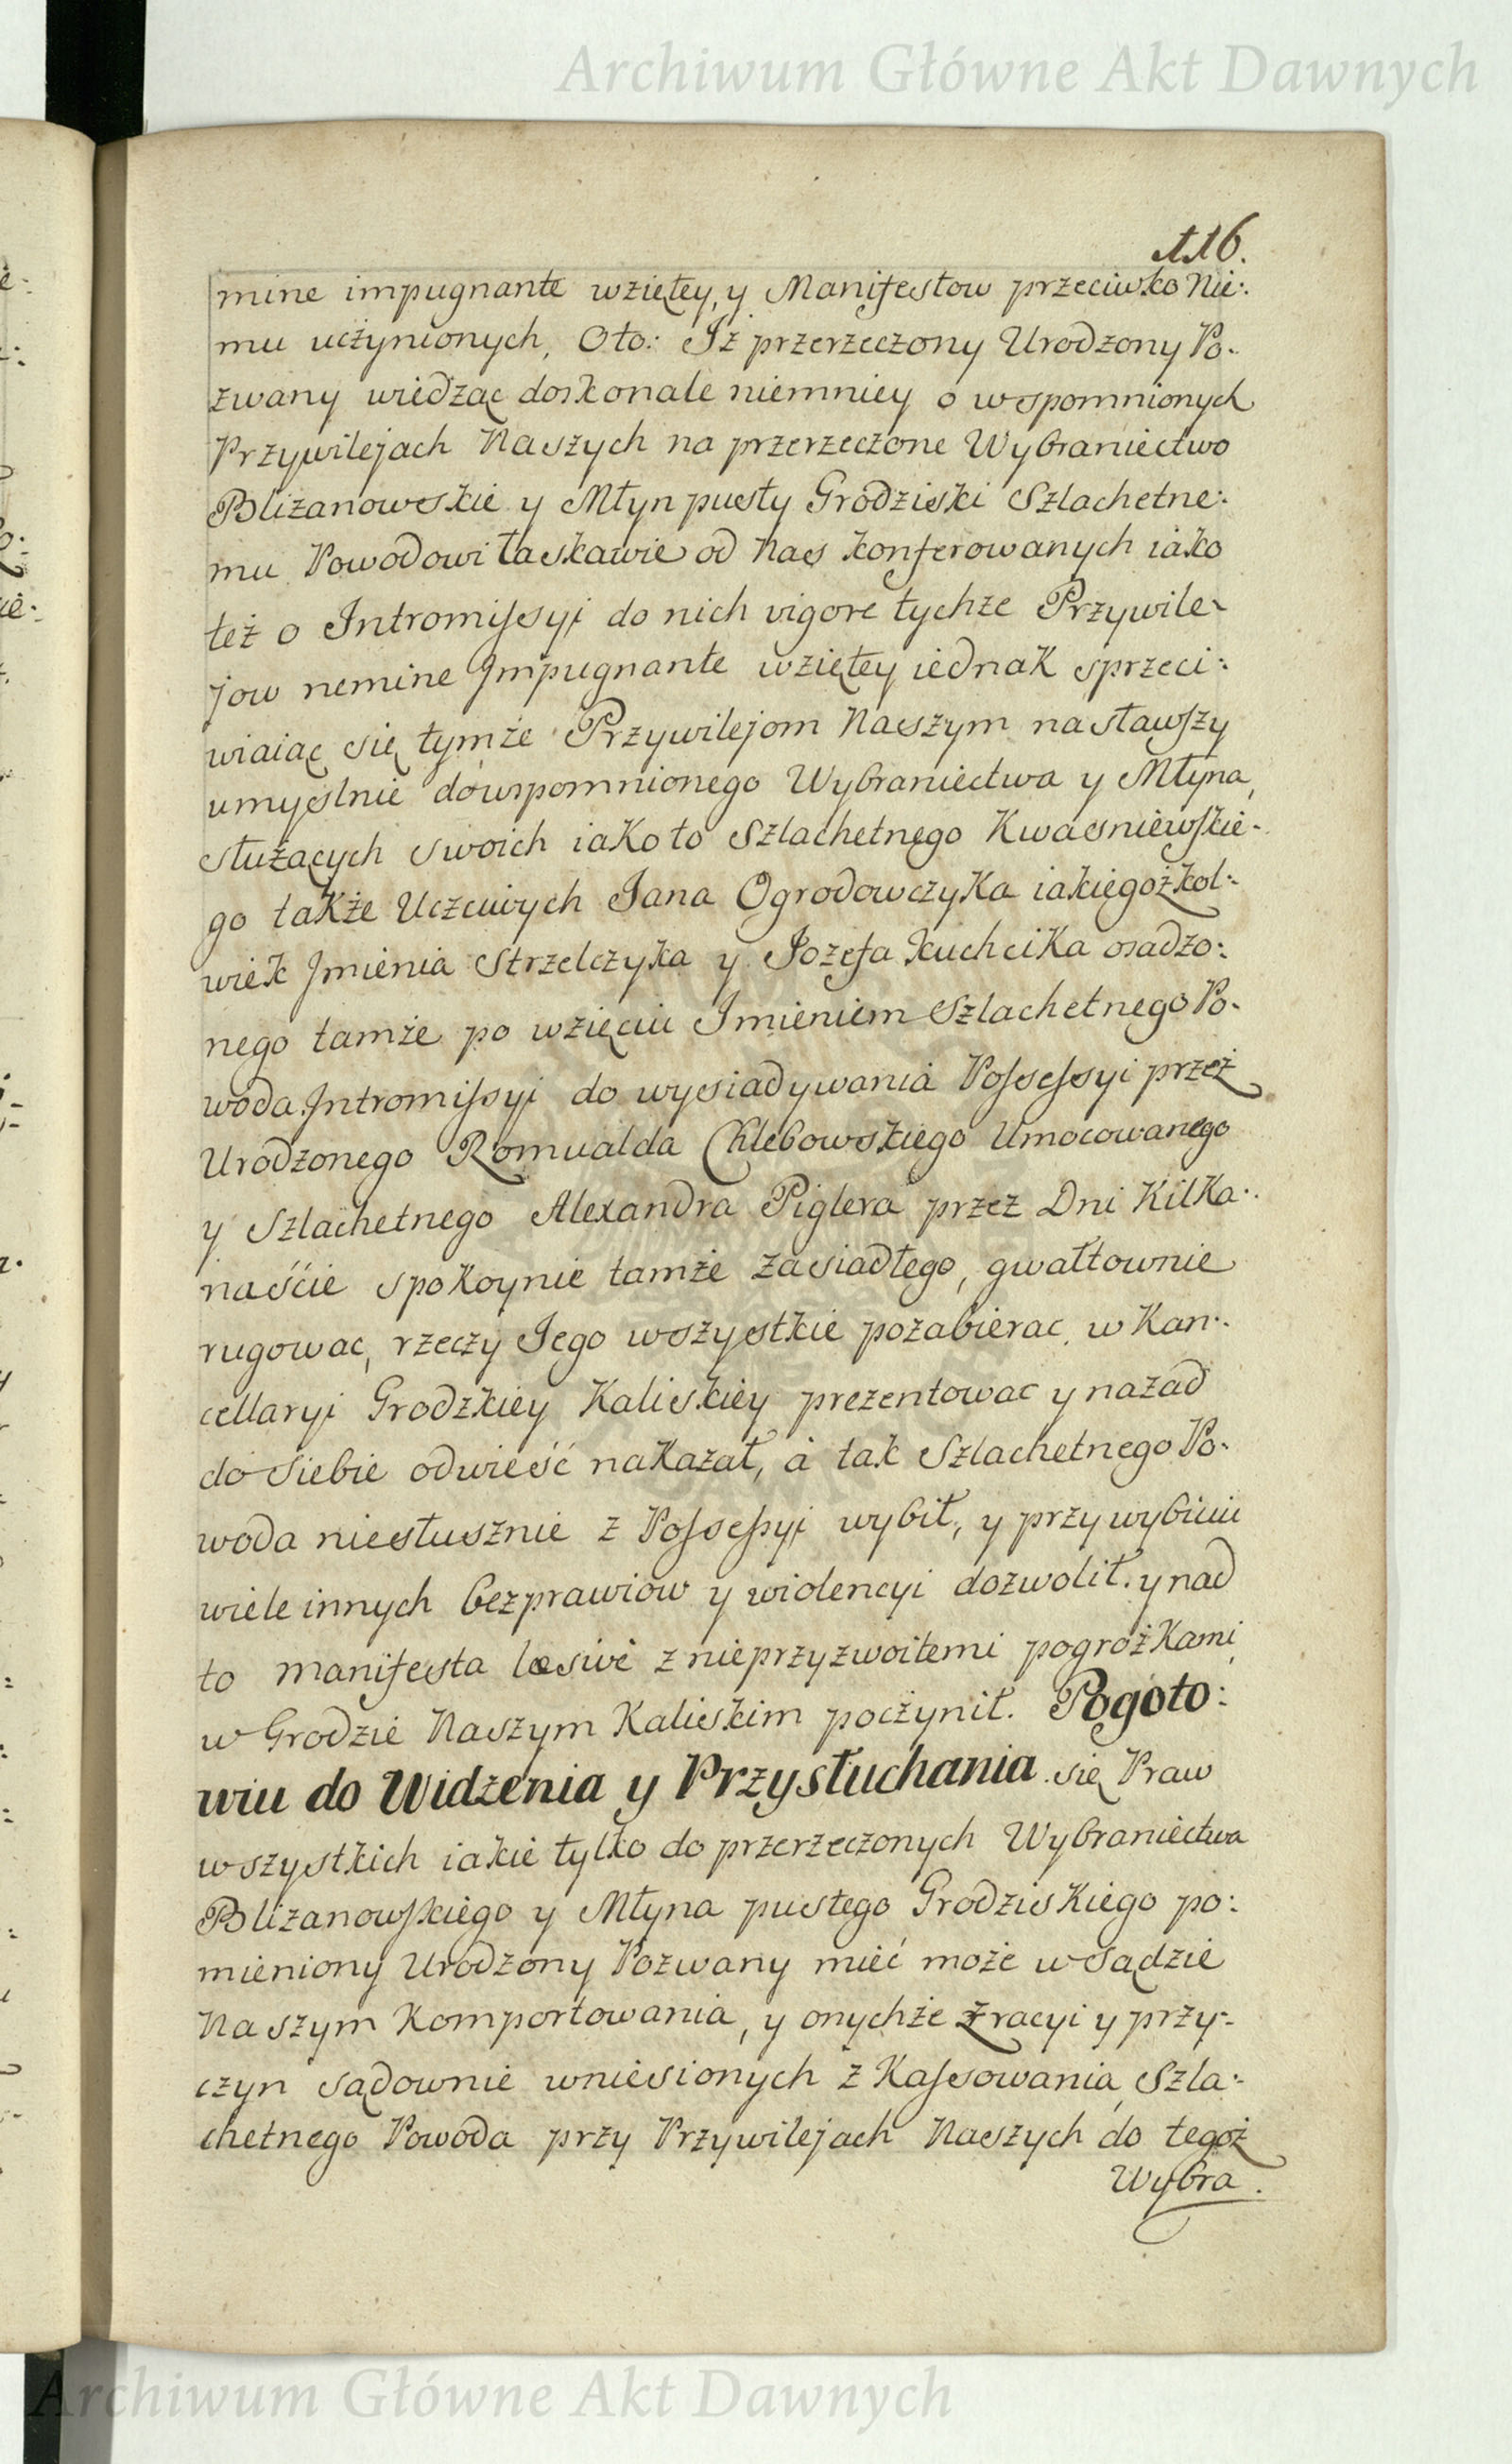 Archiwum Główne Akt Dawnych
116.
mine impugnante wziętey, y Manifestow przeciwko Nie:
mu uczynionych, Oto: Jż przerzeczony Urodzony Po:
zwany wiedząc doskonale niemniey o wspomnionych
Przywilejach Naszych na przerzeczone Wybraniectwo
Bliżanowskie y Młyn pusty Grodziski Szlachetne:
mu Powodowi łaskawie od Nas konferowanych iako
też o Intromissyi do nich vigore tychże Przywile-
jow nemine Jmpugnante wziętey iednak sprzeci:
wiaiąc się tymże Przywilejom Naszym nasławszy
umyslnie do wspomnionego Wybraniectwa y Młyna,
służących swoich iako to Szlachetnego Kwasniewskie-
go także Uczciwych Jana Ogrodowczyka iakiegożkol:
wiek Jmienia Strzelczyka y Jozefa Kuchcika osadzo:
nego tamże po wzięciu Jmieniem Szlachetnego Po-
woda Jntromissyi do wysiadywania Possessyi przez
Urodzonego Romualda Chlebowskiego Umocowanego
y Szlachetnego Alexandra Piglera przez Dni Kilka:
naście spokoynie tamże zasiadłego, gwałtownie
rugowac, rzeczy Jego wszystkie pozabierac, w Kan:
cellaryi Grodzkiey Kaliskiey prezentowac y nazad
do siebie odwieść nakazał, a tak Szlachetnego Po-
woda niesłusznie z Possessyi wybił, y przy wybiciu
wiele innych bezprawiow y wiolencyi dozwolił. y nad
to manifesta læsivè z nieprzyzwoitemi pogrożkami
w Grodzie Naszym Kaliskim poczynił. Pogoto:
wiu do Widzenia y Przysłuchania się Praw
wszystkich iakie tylko do przerzeczonych Wybraniectwa
Bliżanowskiego y Młyna pustego Grodziskiego po:
mieniony Urodzony Pozwany mieć może w Sądzie
Naszym Komportowania, y onychże z racyi y przy-
czyn sądownie wniesionych z Kassowania, Szla:
chetnego Powoda przy Przywilejach Naszych do tegoż
Wybra.
Archiwum Główne Akt Dawnych